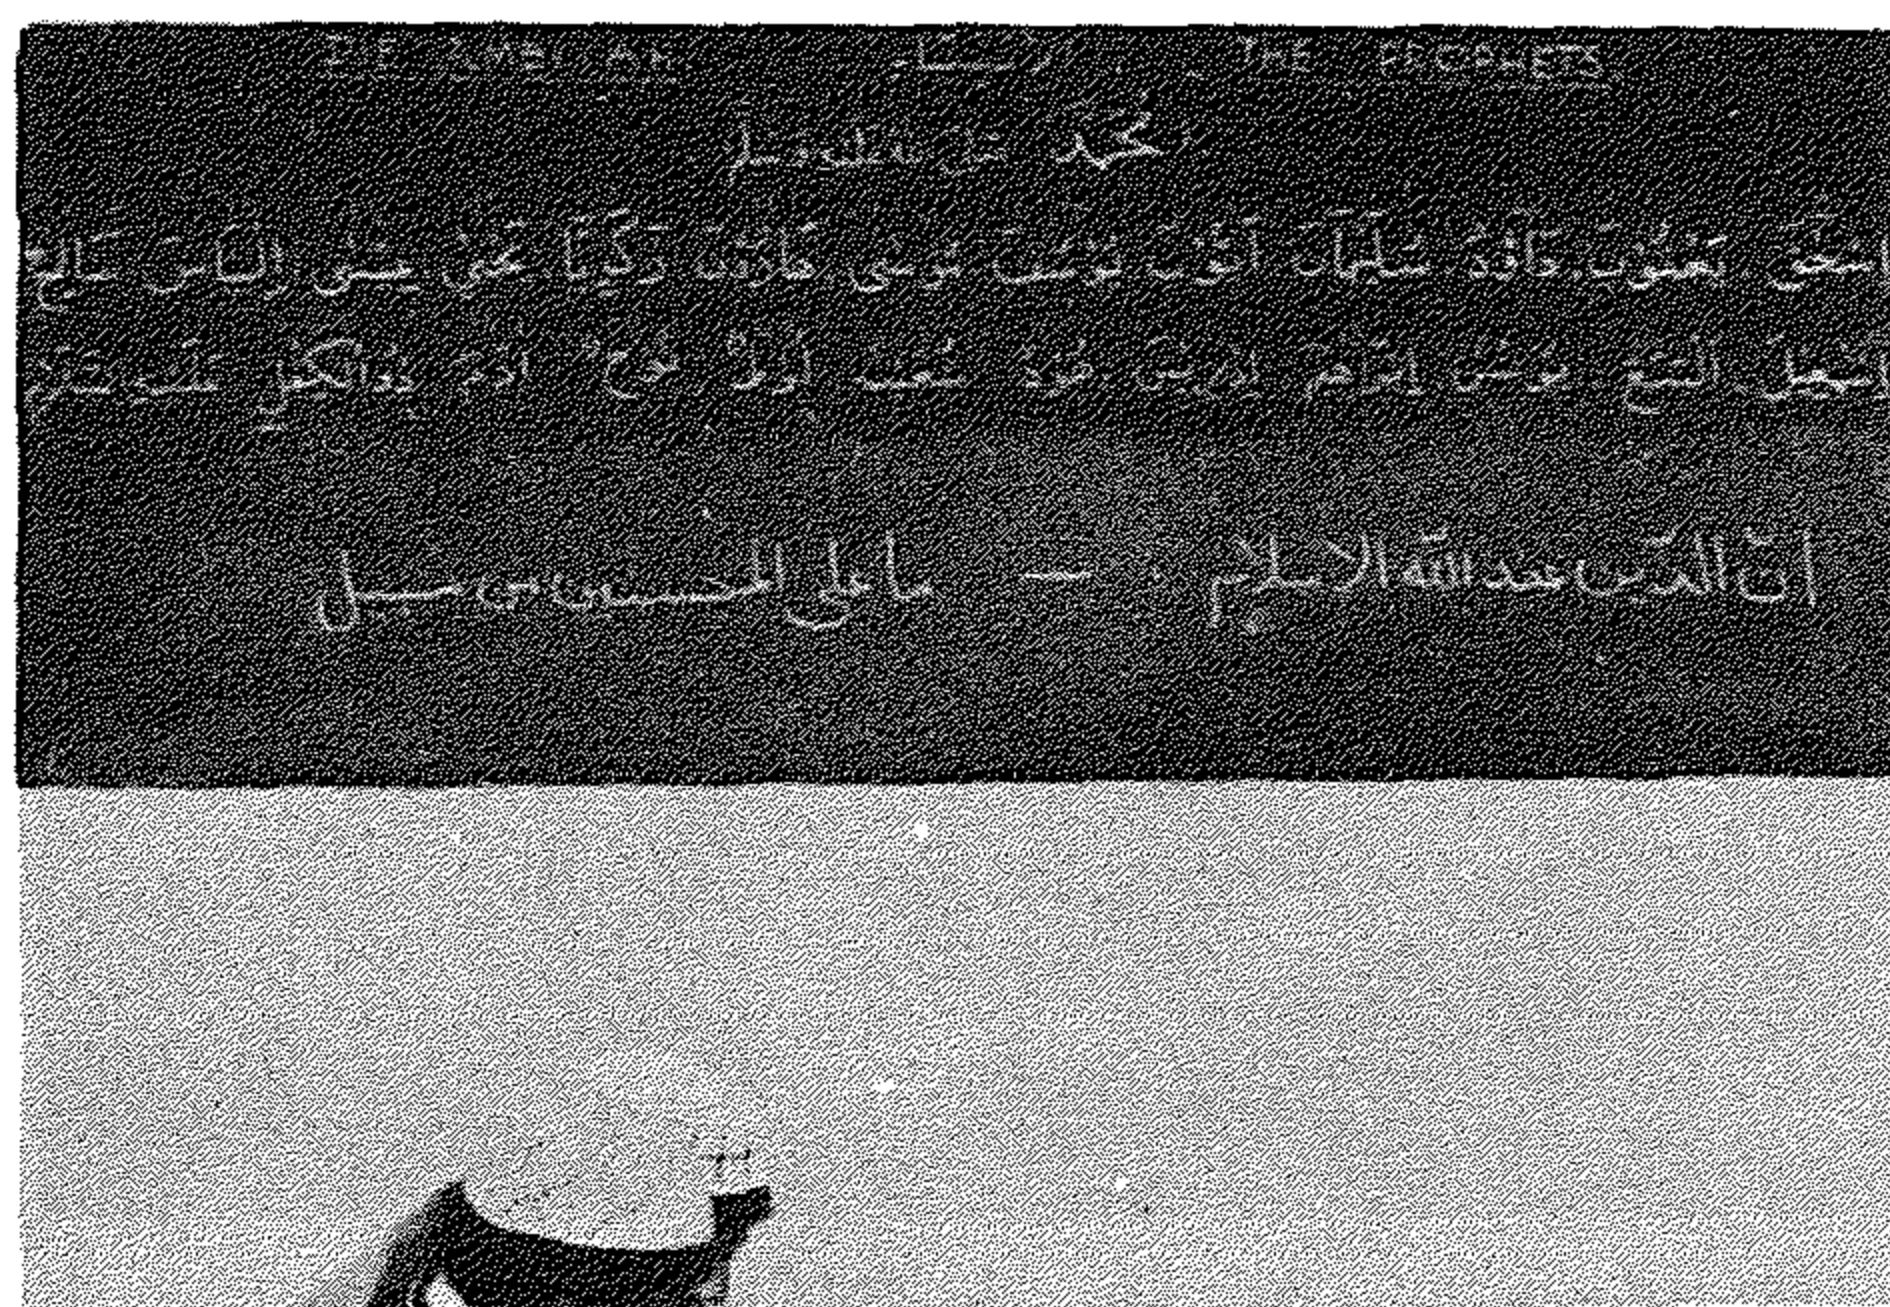 DIE AMBIYAH THE PROPHETS
مُحَمَّد صلى الله عليه وسلم
إِسْحٰق يَعْقُوبَ دَاوُدَ سُلَيْمَانَ أَيُّوبَ يُوسُفَ مُوسَى هَارُونَ زَكَرِيَّا يَحْيَى عِيسَى إِلْيَاسَ صَالِح
إِسْمٰعِيلَ الْيَسَع يُونُسَ إِبْرَاهِيمَ إِدْرِيسَ هُودٌ شُعَيْب لُوطٌ نُوحٌ آدَمَ ذُو الْكِفْلِ
إنّ الدّين عند اللّه الإسلام — ما على المحسنين من سبيل